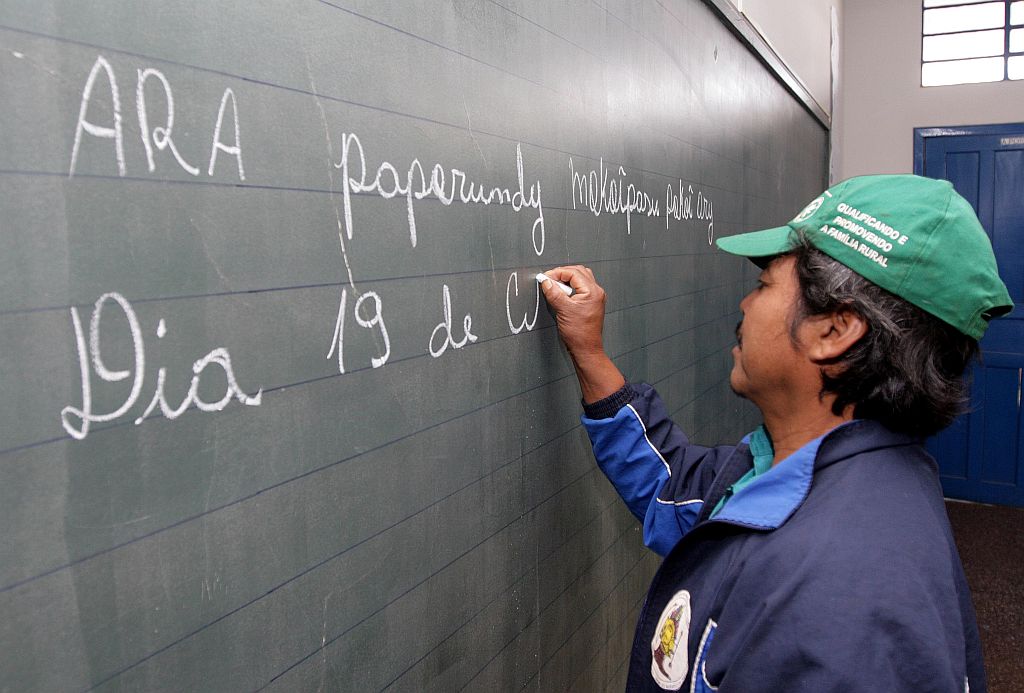 ARA paperundy mokoîpasu pakoî ary
Dia 19 de
QUALIFICANDO E
PROMOVENDO
A FAMÍLIA RURAL